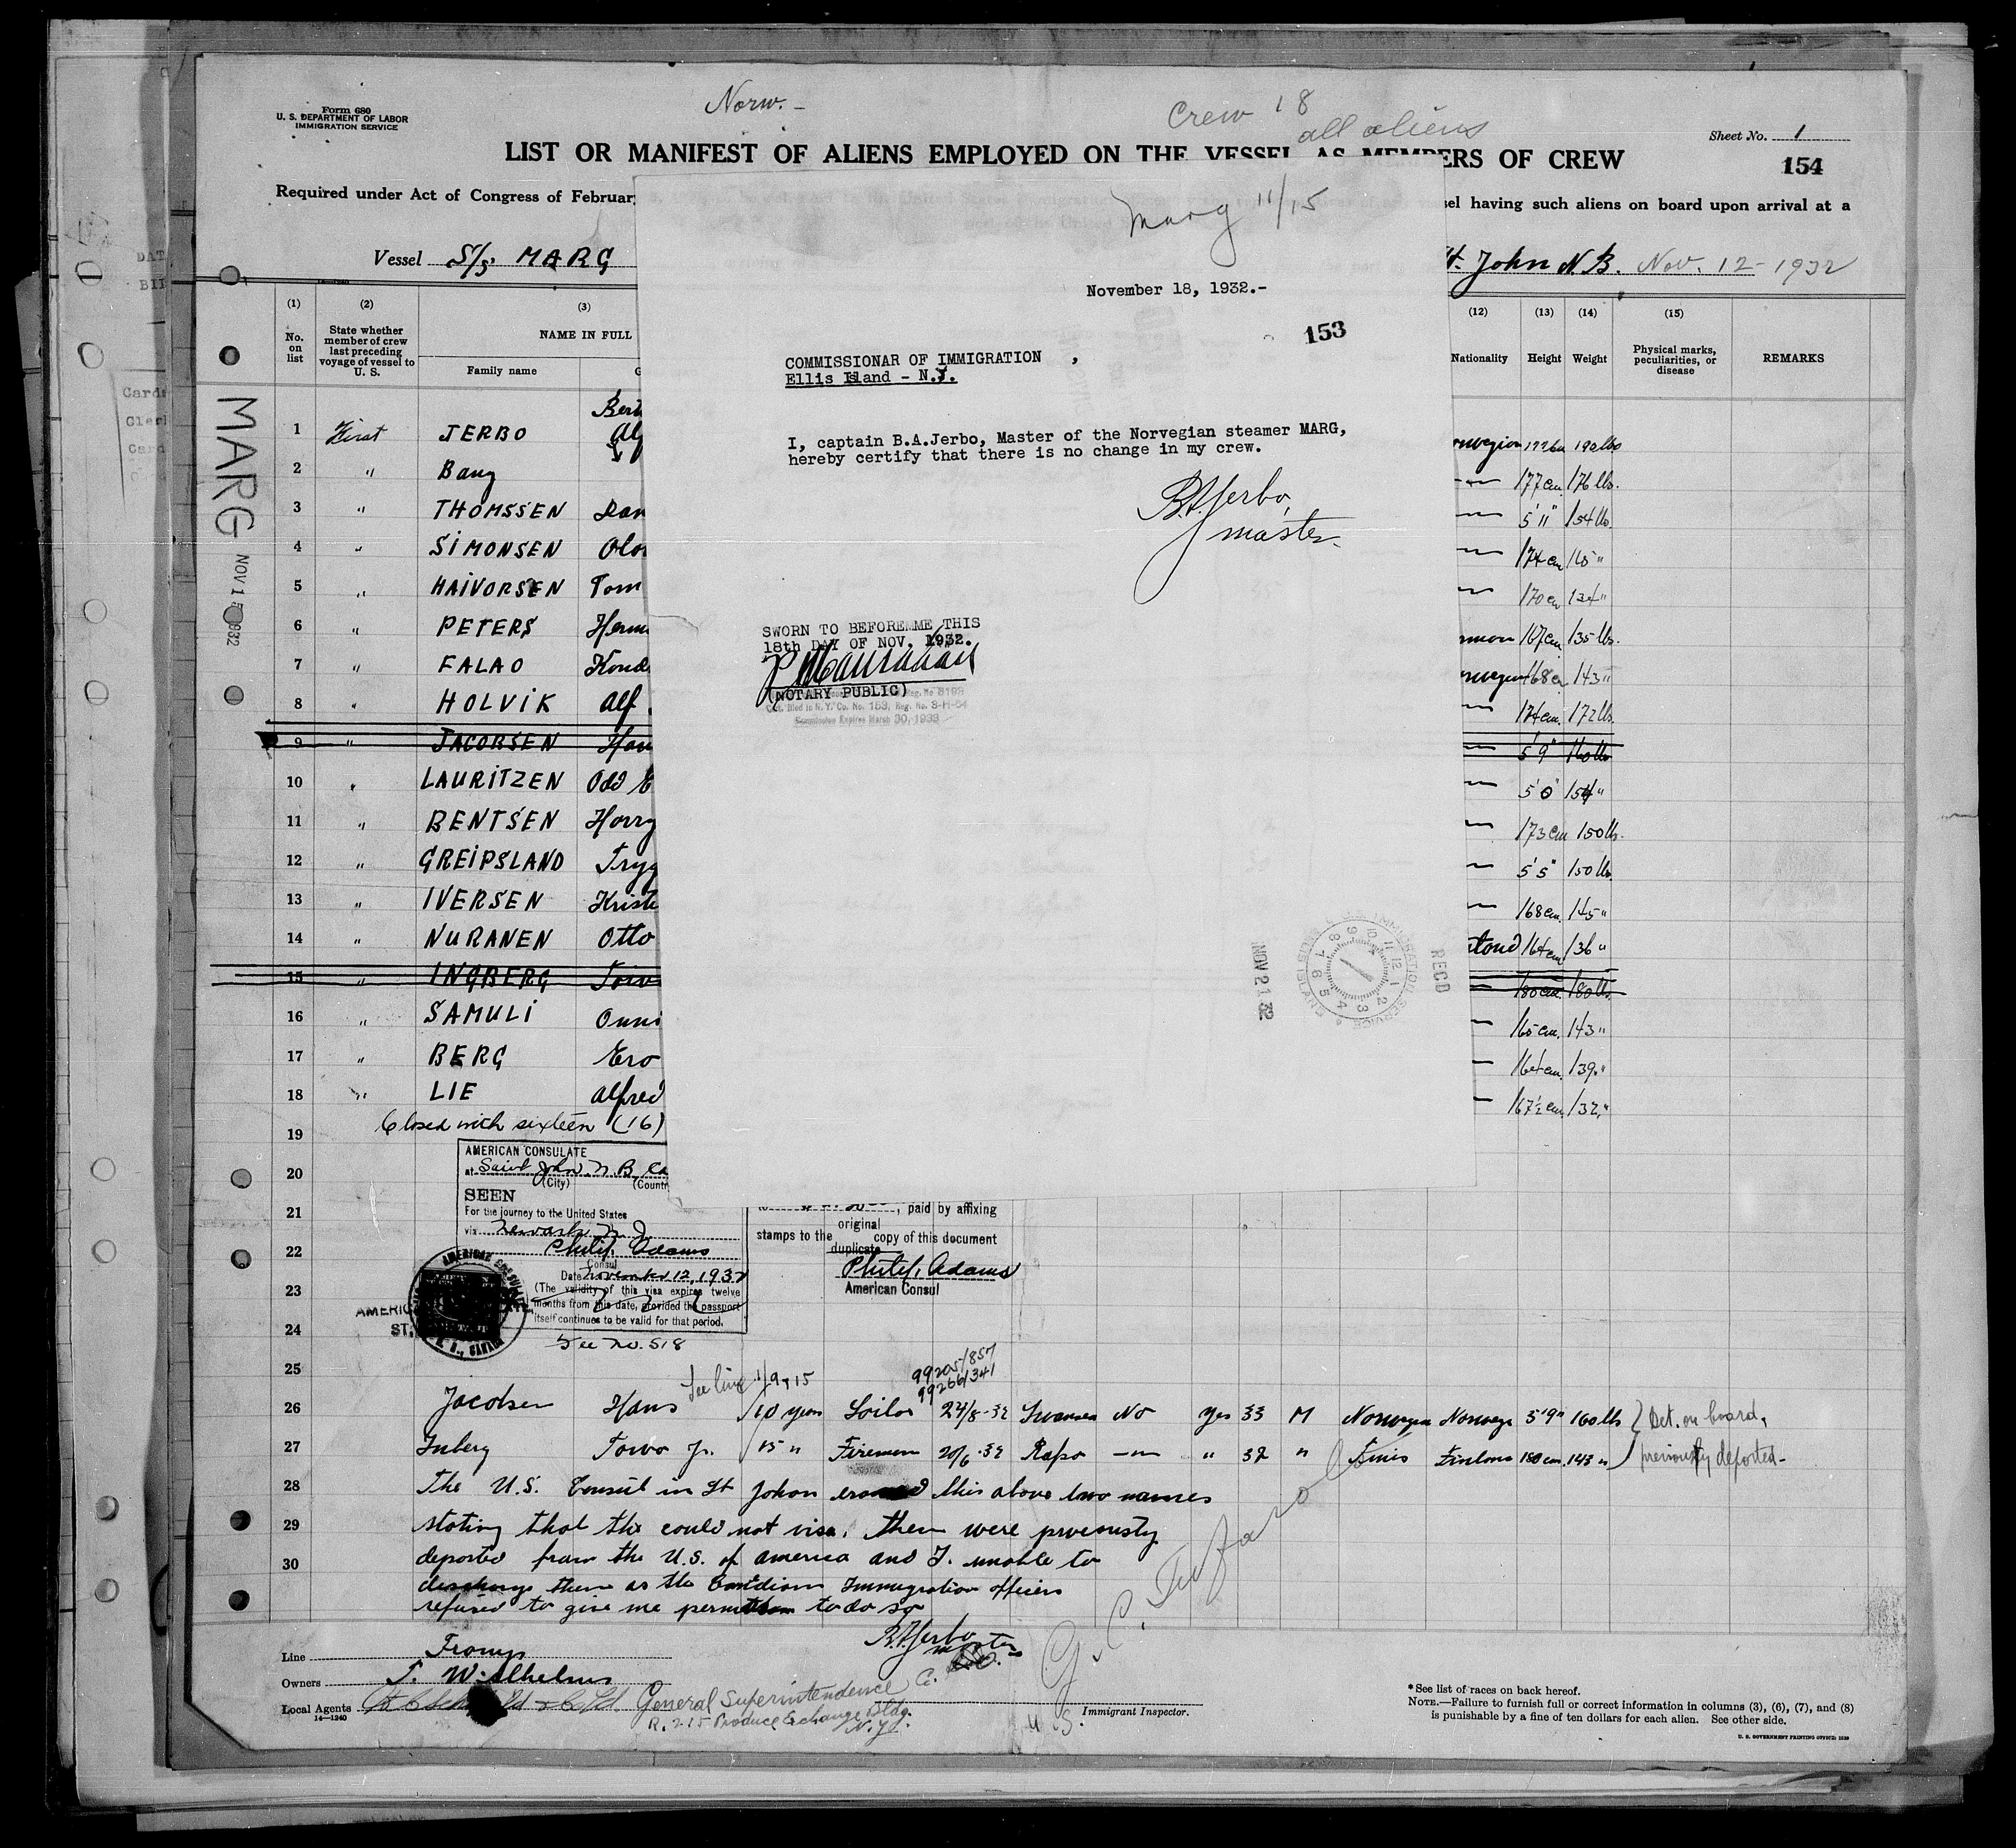 Form 680
U. S. DEPARTMENT OF LABOR
IMMIGRATION SERVICE
Norw. -
Crew 18
all aliens
Sheet No. 1
LIST OR MANIFEST OF ALIENS EMPLOYED ON THE VESSEL AS MEMBERS OF CREW
154
Required under Act of Congress of Februar
sel having such aliens on board upon arrival at a
Vessel S/S. MARG
St. John N B. Nov. 12 - 1932
Marg 11/15
November 18, 1932.-
153
COMMISSIONAR OF IMMIGRATION ,
Ellis Island - N.Y.
I, captain B.A.Jerbo, Master of the Norvegian steamer MARG,
hereby certify that there is no change in my crew.
B.A.Jerbo,
master.
SWORN TO BEFOREMME THIS
18th DAY OF NOV. 1932.
(NOTARY PUBLIC)
Reg. No 8193
Cert. filed in N.Y. Co. No. 153, Reg. No. 3-H-84
Commission Expires March 30, 1933
RECD
NOV 21 32
ELLIS ISLAND
IMMIGRATION SERVICE
MARG
NOV 15 1932
(1) (2) (3) (12) (13) (14) (15)
No. on list
State whether member of crew last preceding voyage of vessel to U. S.
NAME IN FULL
Family name
Nationality Height Weight
Physical marks, peculiarities, or disease
REMARKS
1 First JERBO Bert Alf rwegian 177 cm 190 lbs
2 " Bang -"- 177 cm. 176 lbs.
3 " THOMSSEN -"- 5'11" 154 lb.
4 " SIMONSEN Olo -"- 174 cm 165 "
5 " HAIVORSEN Tom -"- 170 cm 134 "
6 " PETERS Herm rman 167 cm 135 lbs.
7 " FALAO rwegian 168 cm 143 "
8 " HOLVIK Alf 174 cm. 172 lb.
9 " JACORSEN Han 5'9" 160 lb
10 " LAURITZEN Odd E 5'0" 154 "
11 " BENTSEN Harry 173 cm 150 lb.
12 " GREIPSLAND Tryg 5'5" 150 lb.
13 " IVERSEN Krist 168 cm. 145 "
14 " NURANEN Otto 164 cm 136 "
15 " INGBERG Toiv 180 cm. 180 lb.
16 " SAMULI Onni 165 cm. 143 "
17 " BERG Ero 164 cm. 139 "
18 " LIE Alfred 167½ cm. 132 "
Closed with sixteen (16)
19
20
21
22
23
24
25
AMERICAN CONSULATE
at Saint John, N. B., Ca
(City) (Countr
SEEN
For the journey to the United States
via Newark N J
Philip Adams
Consul
Date November 12, 1932
(The validity of this visa expires twelve
months from this date, provided the passport
itself continues to be valid for that period.
Fee No. 518
, paid by affixing
original
stamps to the copy of this document
duplicate
Philip Adams
American Consul
AMERICAN CONSULATE
ST.
CANADA
See line 9, 15
99205/857
99266/341
26 Jacobsen Hans 10 years Sailor 24/8-32 Swansea No Yes 33 M Norwegian Norwege 5'9" 160 lbs Det. on board,
27 Inberg Toivo Jr. 15 " Firemen 20/6-32 Rafso -"- " 32 " Finis Finland 180 cm. 143 " previously deported -
28 The U.S. Consul in St John erased this above two names
29 stating that the could not visa. Them were previousty
30 deported from the U.S. of america and I. unable to
discharge them as the Canadiam Immigration officers
refused to give me permition to do so
B.A.Jerbo
master
G. C. Tufaro
U. S. Immigrant Inspector.
Line Fromys
Owners T. Wilhelms
Local Agents
14—1240
General Superintendence Co.
R. 215 Produce Exchange Bldg.
N.Y.C.
*See list of races on back hereof.
NOTE.—Failure to furnish full or correct information in columns (3), (6), (7), and (8)
is punishable by a fine of ten dollars for each alien. See other side.
U. S. GOVERNMENT PRINTING OFFICE: 1930